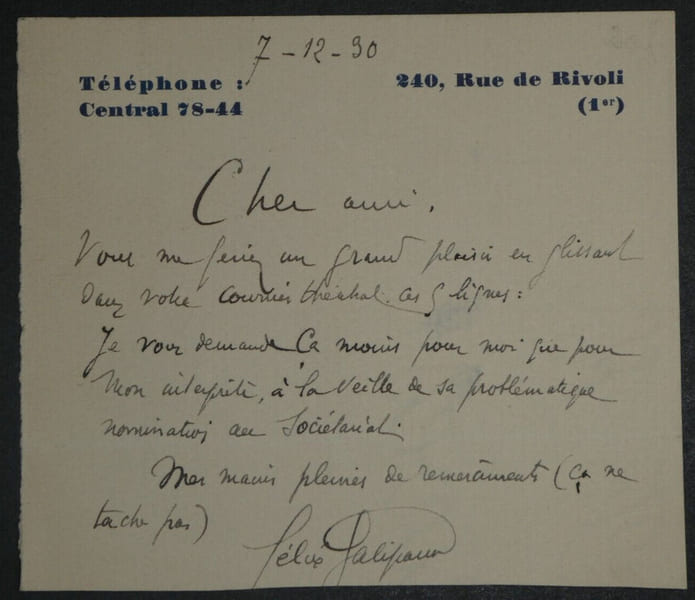 7-12-30
Téléphone :
Central 78-44
240, Rue de Rivoli
(1er)
Cher ami,
Vous me feriez un grand plaisir en glissant
dans votre courrier théâtral ces lignes :
Je vous demande ça moins pour moi que pour
mon interprète, à la veille de sa problématique
nomination au Sociétariat.
Mes mains pleines de remerciments (ça ne
tache pas)
Félix Galipaux